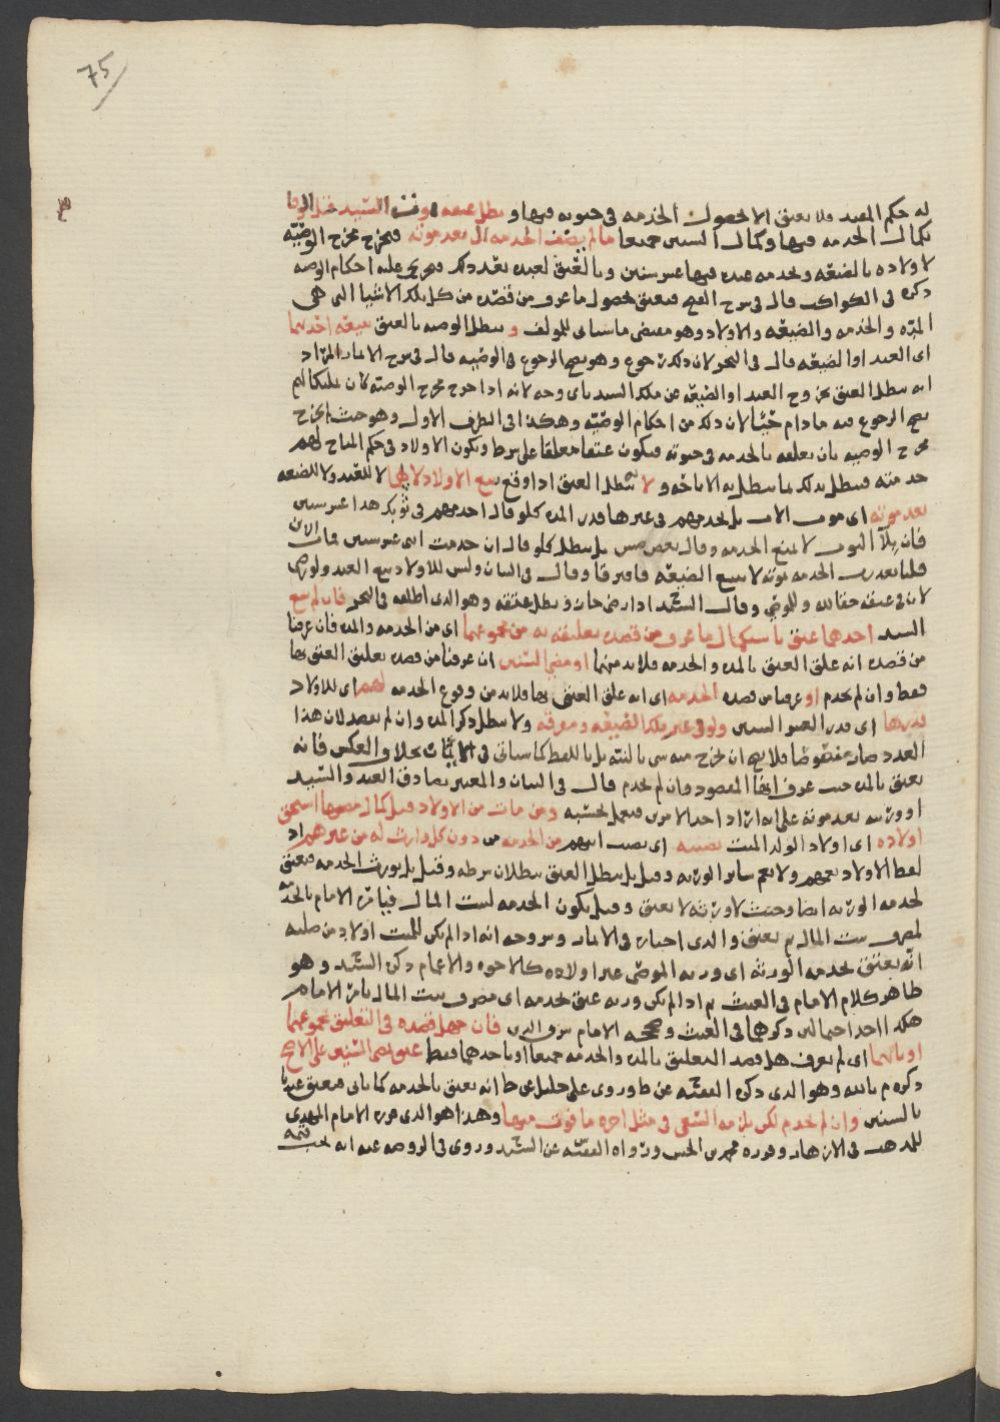 75
له حكم العبد فلا يعتق الا لحصول الخدمه في حيوته فيها و
بكمال الخدمه فيها وكمال السنين جميعا ما لم يضف الخدمه الى بعد موته فيخرج مخرج الوصيه
لاولاده بالضيعه ولخدمه عبده فيها عشر سنين وبالعتق لعبده بعد ذلك فهو عليه احكام الوصيه
ذكره في الكواكب قال في شرح الفتح فيعتق لحصول ما عرف من قصده من كل تلك الاشيا التي هي
المده والخدمه والضيعه والاولاد وهو مقتضى ما سياتي للمولف و يبطل الوصيه بالعتق ببيعه احدهما
اي العبد او الضيعه قال في البحر لان ذلك رجوع وهو يصح الرجوع في الوصيه قال في شرح الاثمار المراد
انه يبطل العتق بخروج العبد او الضيعه عن ملك السيد باي وجه لانه اذا خرج مخرج الوصيه كان
يصح الرجوع فيه ما دام حيا لان ذلك من احكام الوصيه وهكذا في الطرف الاول وهو حيث لم يخرج
مخرج الوصيه بان يعلقه بالخدمه في حيوته فيكون عتقا معلقا على شرط ويكون الاولاد في حكم المباح لهم
خدمته فيبطل بذلك بما يبطل به الاباحه و لا يبطل العتق اذا وقع بيع الاولاد لايهما لا للعبد ولا للضيعه
بعد موته اي موت الاب بل يخدمهم في غيرها قدر المده كلو قال اخدمهم في ثوبك هذا عشر سنين
فان بلا الثوب لا يمنع الخدمه وقال بعض بل يبطل كلو قال ان خدمت ابني عشر سنين فمات الابن
قلنا تعذرت الخدمه بموته لا ببيع الضيعه فافترقا وقال في البيان وليس للاولاد بيع العبد ولو رضي
لان في عتقه حقا لله وللموصي وقال السيد اذا رضي جاز وبطل عتقه وهو الذي اطلقه في البحر فان لم يبع
السيد احدهما عتق باستكمال ما عرف من قصده تعليقه به من مجموعهما اي من الخدمه والمده فان عرفنا
من قصده انه علق العتق بالمده والخدمه فلا بد منهما او مضى السنين ان عرفنا من قصده تعليق العتق بها
فقط وان لم يخدم او عرفنا من قصده الخدمه اي انه علق العتق بها فلابد من وقوع الخدمه لهم اي للاولاد
قدرها اي قدر العشر السنين ولو في غير تلك الضيعه ومفرقه ولا يبطل ذكر المده وان لم يقصد لان هذا
العدد صار فلا يصح ان يخرج منه شي بالنيه بل باللفظ كما سياتي في الايمان بخلاف العكس فانه
يعتق بالمده حيث عرف انها المقصود وان لم يخدم قال في البيان والمعتبر تصادق العبد والسيد
او ورثته بعد موته على انه اراد احد الامرين فيعمل بحسبه ومن مات من الاولاد قبل كمال استحق
اولاده اي اولاد الولد الميت نصيبه اي نصيب ابيهم من الخدمه من دون كل وارث له من غيرهم اذ
لفظ الاولاد يعمهم ولا يعم سائر الورثه وقيل بل يبطل العتق ببطلان شرطه وقيل بل يورث الخدمه فيعتق
بخدمه الورثه ايضا وحيث لا ورثه لا يعتق وقيل يكون الخدمه لبيت المال فيامره الامام بالخدمه
لمصرف بيت المال ثم يعتق والذي اختاره في الاثمار وشروحه انه اذا لم يكن للميت اولاد من صلبه
انه يعتق بخدمه الورثه اي ورثه الموصي غير اولاده كالاخوه والاعمام ذكره السيد وهو
ظاهر كلام الامام في الغيث ثم اذا لم يكن ورثه عتق بخدمه اي مصرف بيت المال يامره الامام
هكذا احد احتمالين ذكرهما في الغيث وصححه الامام شرف الدين فان جهل قصده في التعليق بمجموعهما
او بايهما اي لم يعرف هل قصد التعليق بالمده والخدمه جميعا او باحدهما فقط عتق بمضي السنين على الاصح
ذكره م بالله وهو الذي ذكره الفقيه عن ط وروي علي خليل عن ط انه يعتق بالخدمه كما ياتي فيعتق عندنا
بالسنين وان لم يخدم لكن يلزمه السعي في مثل اجره ما فوت منهما وهذا هو الذي قرره الامام المهدي
للمذهب في الازهار وقرره ورواه الفقيه عن السيد وروي في الروضه عنه انه يجب قيمه